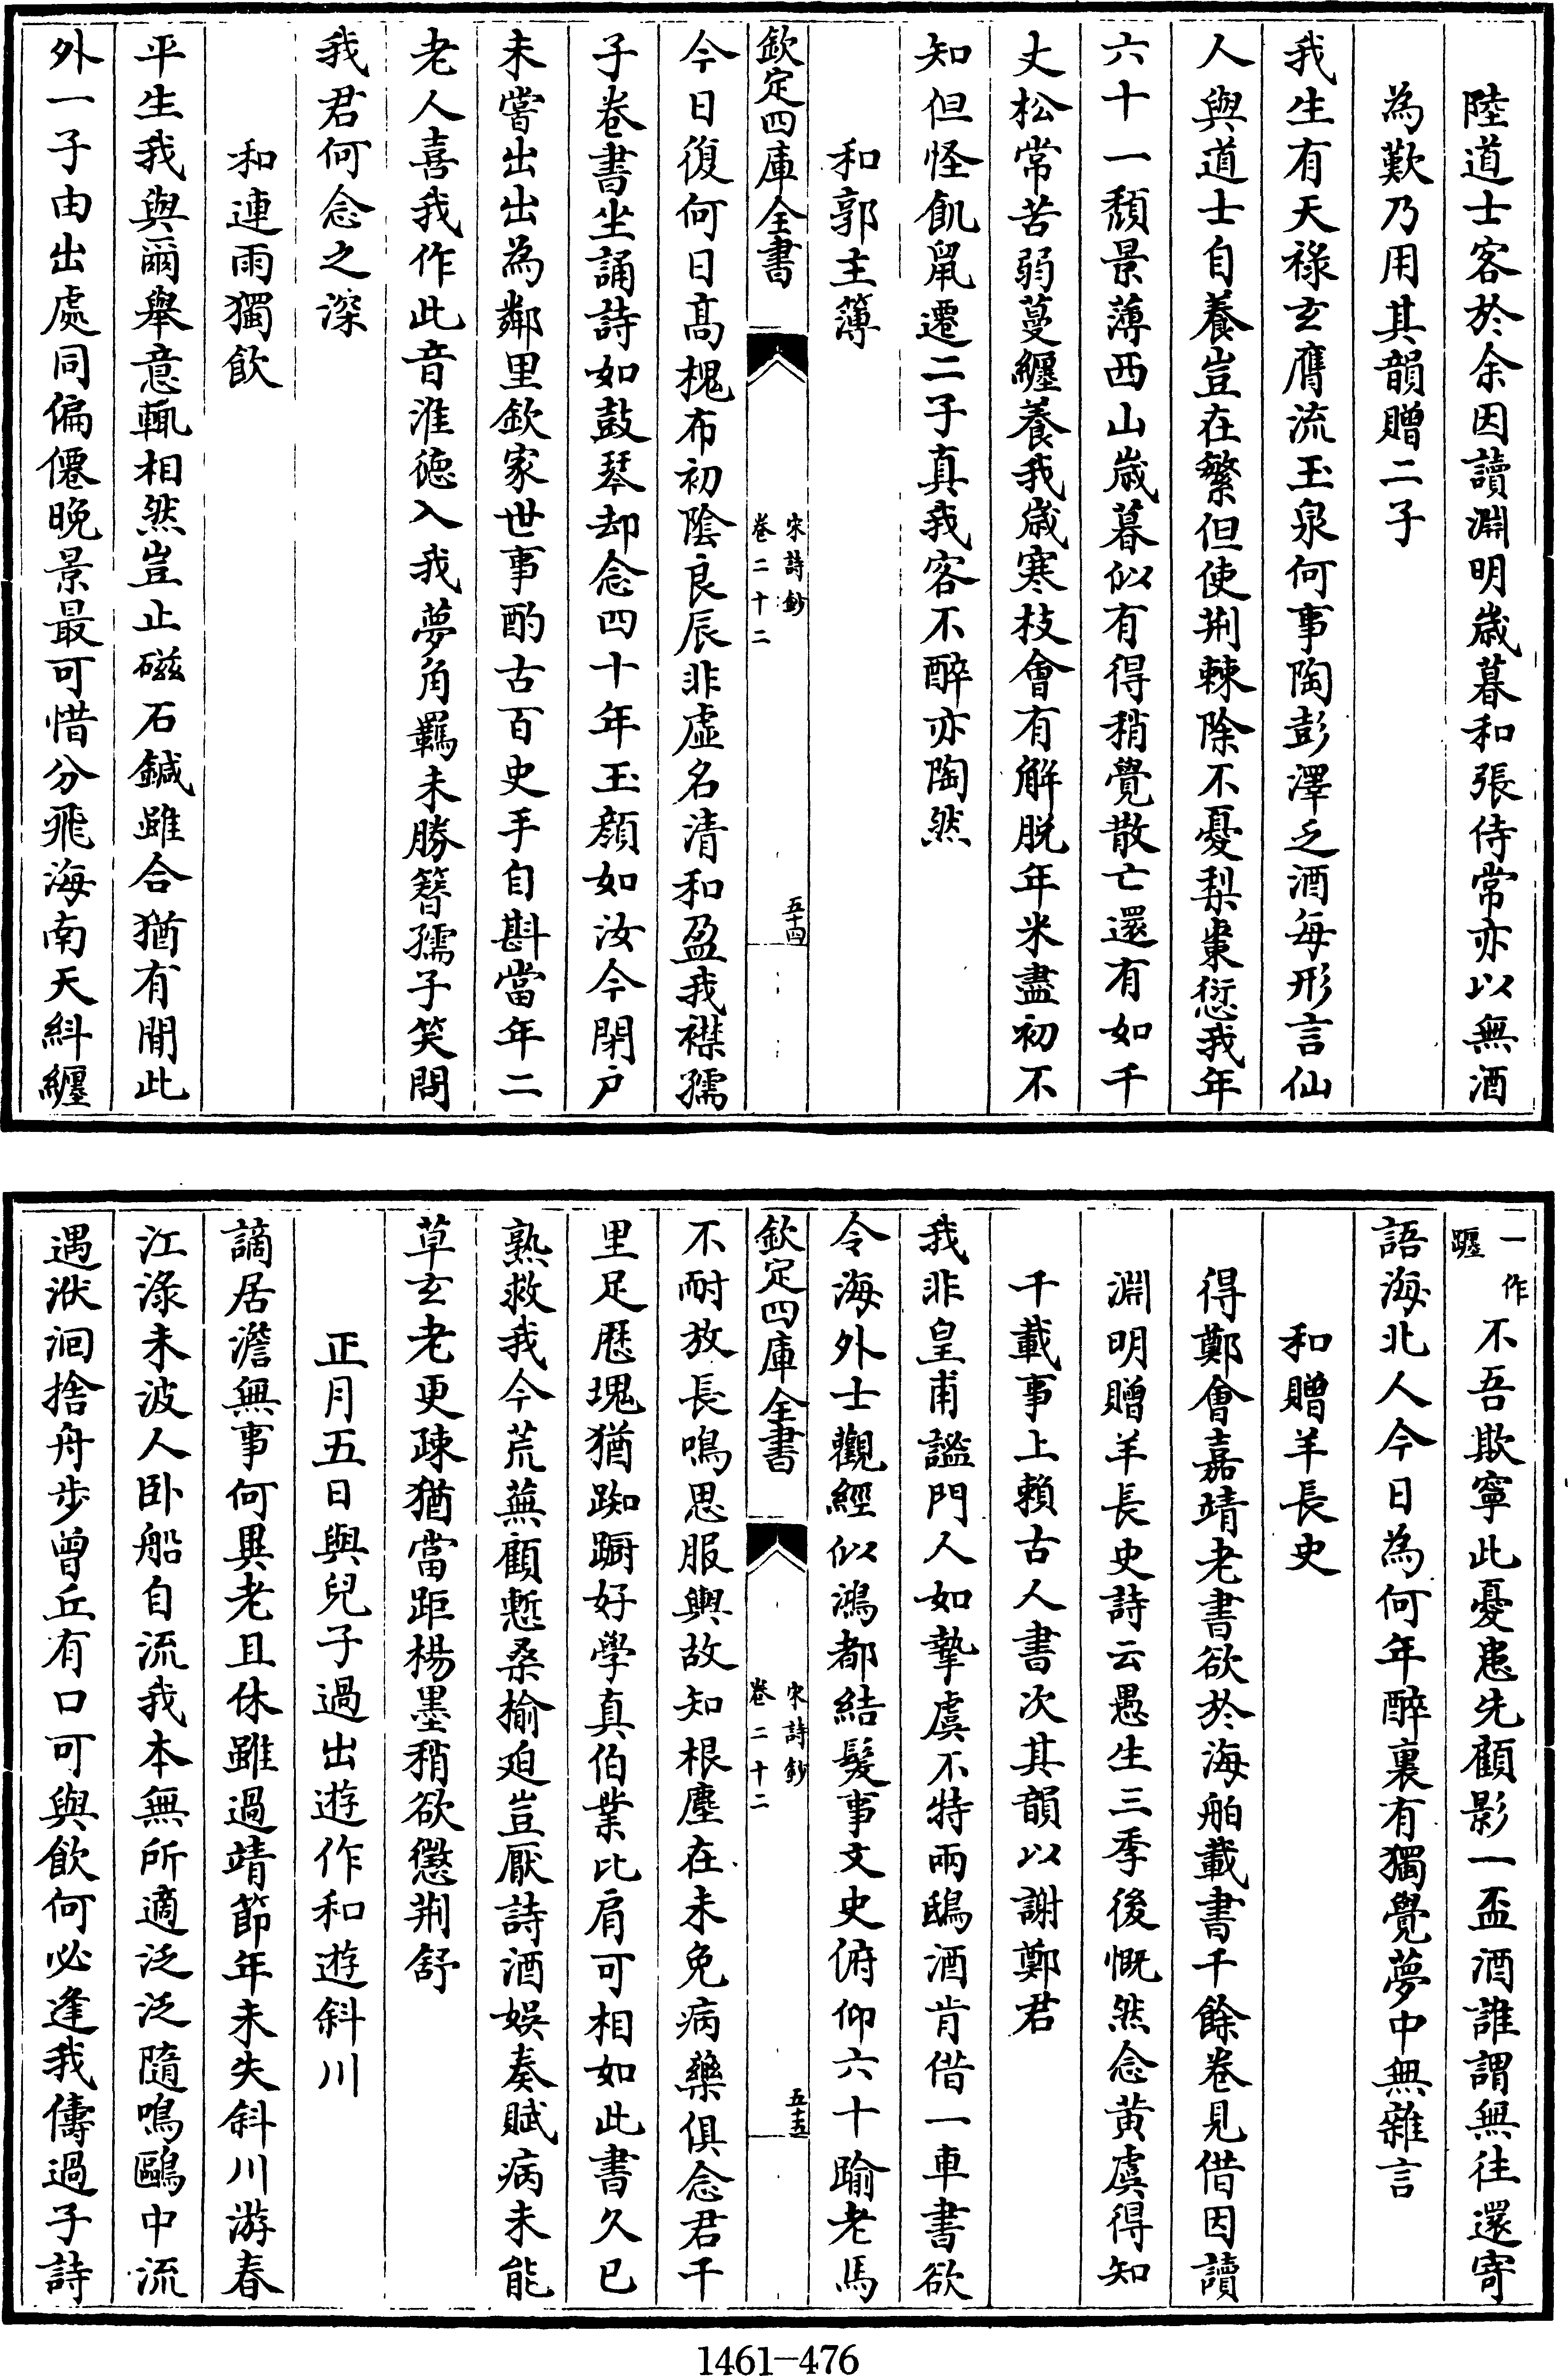 陸道士客於余因讀淵明歲暮和張侍常亦以無酒
為歎乃用其韻贈二子
我生有天祿玄膺流玉泉何事陶彭澤乏酒每形言仙
人與道士自養豈在繁但使荆棘除不憂梨棗愆我年
六十一頹景薄西山歲暮似有得稍覺散亡還有如千
丈松常苦弱蔓纏養我歲寒枝會有解脱年米盡初不
知但怪飢鼠遷二子真我客不醉亦陶然
和郭主簿
欽定四庫全書
宋詩鈔
卷二十二
五十四
今日復何日高槐布初陰良辰非虛名清和盈我襟孺
子卷書坐誦詩如鼓琴却念四十年玉顏如汝今閉户
未嘗出出為鄰里欽家世事酌古百史手自斟當年二
老人喜我作此音淮徳入我夢角羈未勝簪孺子笑問
我君何念之深
和連雨獨飲
平生我與爾舉意輒相然豈止磁石鍼雖合猶有間此
外一子由出處同偏僊晚景最可惜分飛海南天糾纏
一作
躔
不吾欺寧此憂患先顧影一盃酒誰謂無往還寄
語海北人今日為何年醉裏有獨覺夢中無雜言
和贈羊長史
得鄭會嘉靖老書欲於海舶載書千餘卷見借因讀
淵明贈羊長史詩云愚生三季後慨然念黄虞得知
千載事上賴古人書次其韻以謝鄭君
我非皇甫謐門人如摯虞不特兩鴟酒肯借一車書欲
令海外士觀經似鴻都結髮事文史俯仰六十踰老馬
欽定四庫全書
宋詩鈔
卷二十二
五十五
不耐放長鳴思服輿故知根塵在未免病藥俱念君千
里足歴塊猶踟蹰好學真伯業比肩可相如此書久已
熟救我今荒蕪顧慙桑榆廹豈厭詩酒娛奏賦病未能
草玄老更疎猶當距楊墨稍欲懲荆舒
正月五日與兒子過出遊作和遊斜川
謫居澹無事何異老且休雖過靖節年未失斜川游春
江淥未波人卧船自流我本無所適泛泛隨鳴鷗中流
遇洑洄捨舟步曾丘有口可與飲何必逢我儔過子詩
1461-476